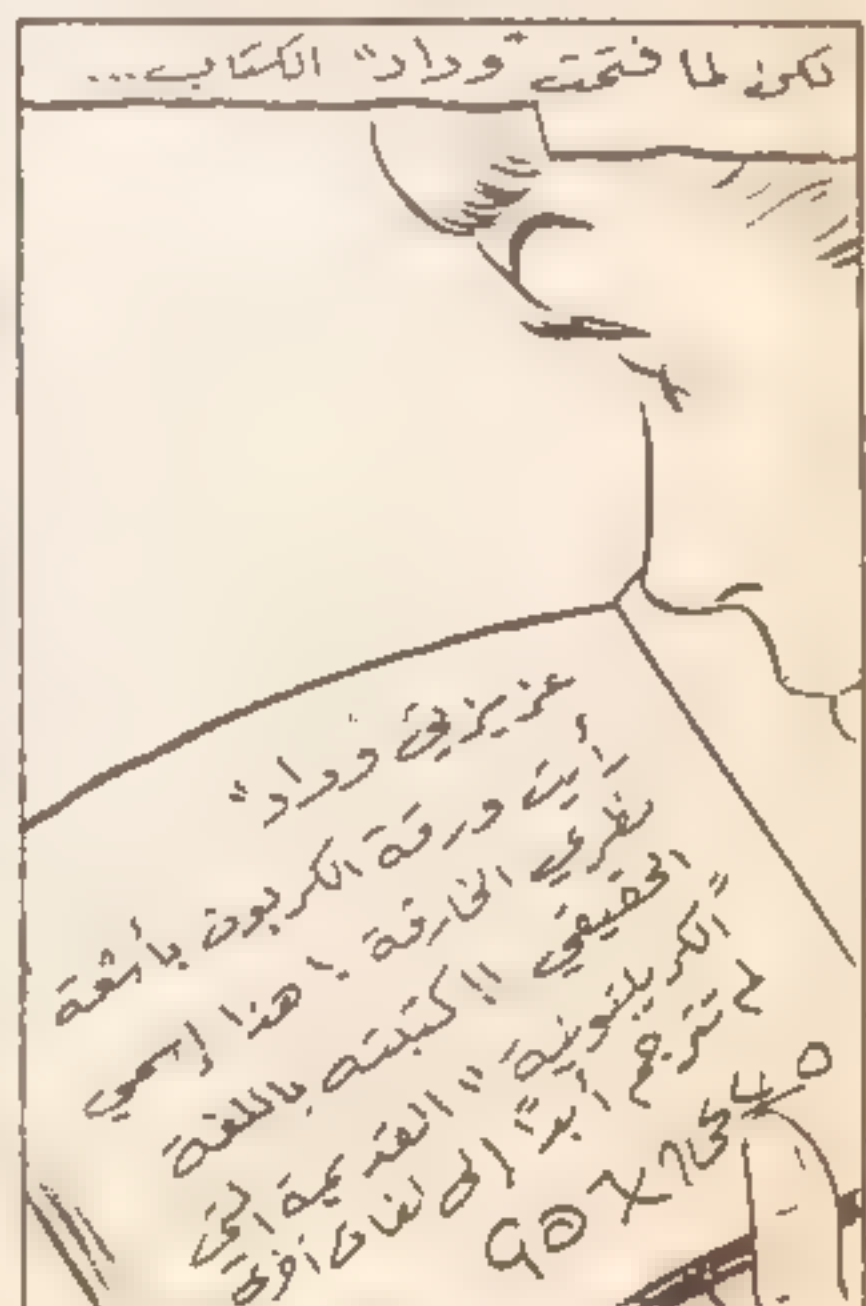 لكن لما فتحت "وداد" الكتاب...
عزيزتي وداد"
رأيت ورقة الكربون بأشعة
نظري الخارقة ! هذا إسمي
الحقيقي !! كتبته باللغة
"الكريبتونية" القديمة التي
لم تترجم أبدًا إلى لغات أخرى